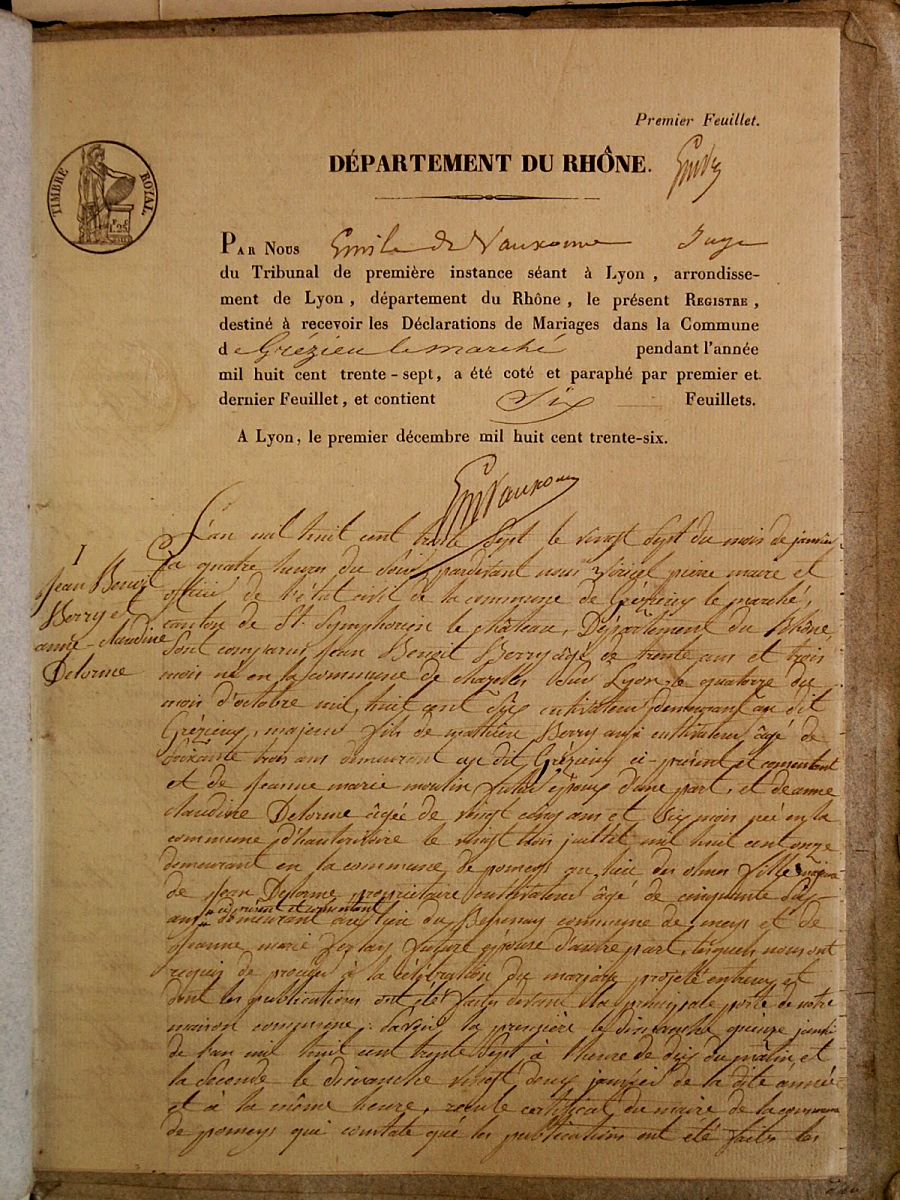 Premier Feuillet.
DÉPARTEMENT DU RHÔNE.
TIMBRE ROYAL.
1.25
PAR NOUS Emile de Vauxonne Juge
du Tribunal de première instance séant à Lyon, arrondisse-
ment de Lyon, département du Rhône, le présent REGISTRE,
destiné à recevoir les Déclarations de Mariages dans la Commune
d e Grézieu le marché pendant l'année
mil huit cent trente-sept, a été coté et paraphé par premier et
dernier Feuillet, et contient Six Feuillets.
A Lyon, le premier décembre mil huit cent trente-six.
EmVauxonne
1
Jean Benoit
Berry et
anne-claudine
Delorme
L'an mil huit cent trente Sept le vingt Sept du mois de janvier
à quatre heures du Soir, pardevant nous pierre maire et
officier de l'état civil de la commune de Grézieu le marché,
canton de St. Symphorien le château, Département du Rhône,
Sont comparus Jean Benoit Berry âgé de trente ans et trois
mois né en la commune de chazelles Sur Lyon, le quatorze du
mois d'octobre mil huit cent Six cultivateur demeurant au dit
Grézieu, majeur fils de mathieu Berry aussi cultivateur âgé de
Soixante trois ans demeurant au dit Grézieu ci-présent et consentent
et de Jeanne marie moulin futur époux d'une part, et de anne
claudine Delorme âgée de vingt cinq ans et Six mois née en la
commune d'hauterivoire le vingt trois juillet mil huit cent onze
demeurant en la commune de pomeys au lieu des olmes fille majeure
de Jean Delorme propriétaire cultivateur âgé de cinquante Six
ans ci présent et consentant demeurant au lieu du commune de meys et de
Jeanne marie future épouse d'autre part, lesquels nous ont
requis de procéder à la célébration du mariage projeté entr'eux et
dont les publications ont été faites devant la principale porte de notre
maison commune. Savoir la première le dimanche quinze janvier
de l'an mil huit cent trente Sept à l'heure de dix du matin et
la Seconde le dimanche vingt deux janvier de la dite année
et à la même heure, certificat du maire de la commune
de pomeys qui constate que les publications ont été faites les